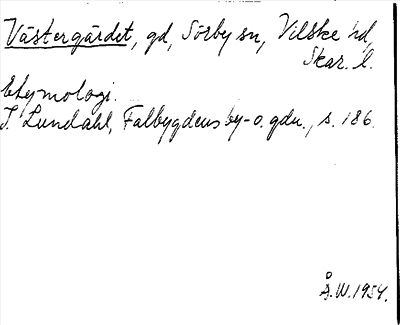 Västergärdet, gd, Sörby sn, Vilske hd,
Skar. l.
Etymologi.
I. Lundahl, Falbygdens by- o. gdn., s. 186.
Å.W. 1954.